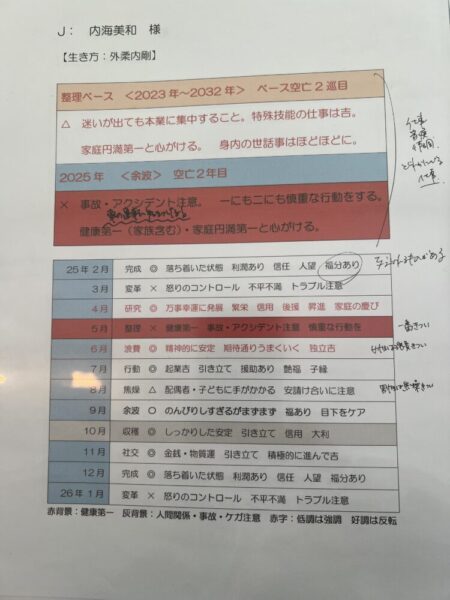 J： 内海美和 様
【生き方：外柔内剛】
整理ベース ＜2023年～2032年＞ ベース空亡2巡目
△ 迷いが出ても本業に集中すること。特殊技能の仕事は吉。
家庭円満第一と心がける。 身内の世話事はほどほどに。
2025年 ＜余波＞ 空亡2年目
× 事故・アクシデント注意。 一にも二にも慎重な行動をする。
健康第一（家族含む）・家庭円満第一と心がける。
25年2月 完成 ◎ 落ち着いた状態 利潤あり 信任 人望 福分あり
3月 変革 × 怒りのコントロール 不平不満 トラブル注意
4月 研究 ◎ 万事幸運に発展 繁栄 信用 後援 昇進 家庭の慶び
5月 整理 × 健康第一 事故・アクシデント注意 慎重な行動を
一番きつい
6月 浪費 ◎ 精神的に安定 期待通りうまくいく 独立吉
7月 行動 ◎ 起業吉 引き立て 援助あり 艶福 子縁
8月 焦燥 △ 配偶者・子どもに手がかかる 安請け合いに注意
9月 余波 ○ のんびりしすぎるがまずまず 福あり 目下をケア
10月 収穫 ◎ しっかりした安定 引き立て 信用 大利
11月 社交 ◎ 金銭・物質運 引き立て 積極的に進んで吉
12月 完成 ◎ 落ち着いた状態 利潤あり 信任 人望 福分あり
26年1月 変革 × 怒りのコントロール 不平不満 トラブル注意
赤背景：健康第一 灰背景：人間関係・事故・ケガ注意 赤字：低調は強調 好調は反転